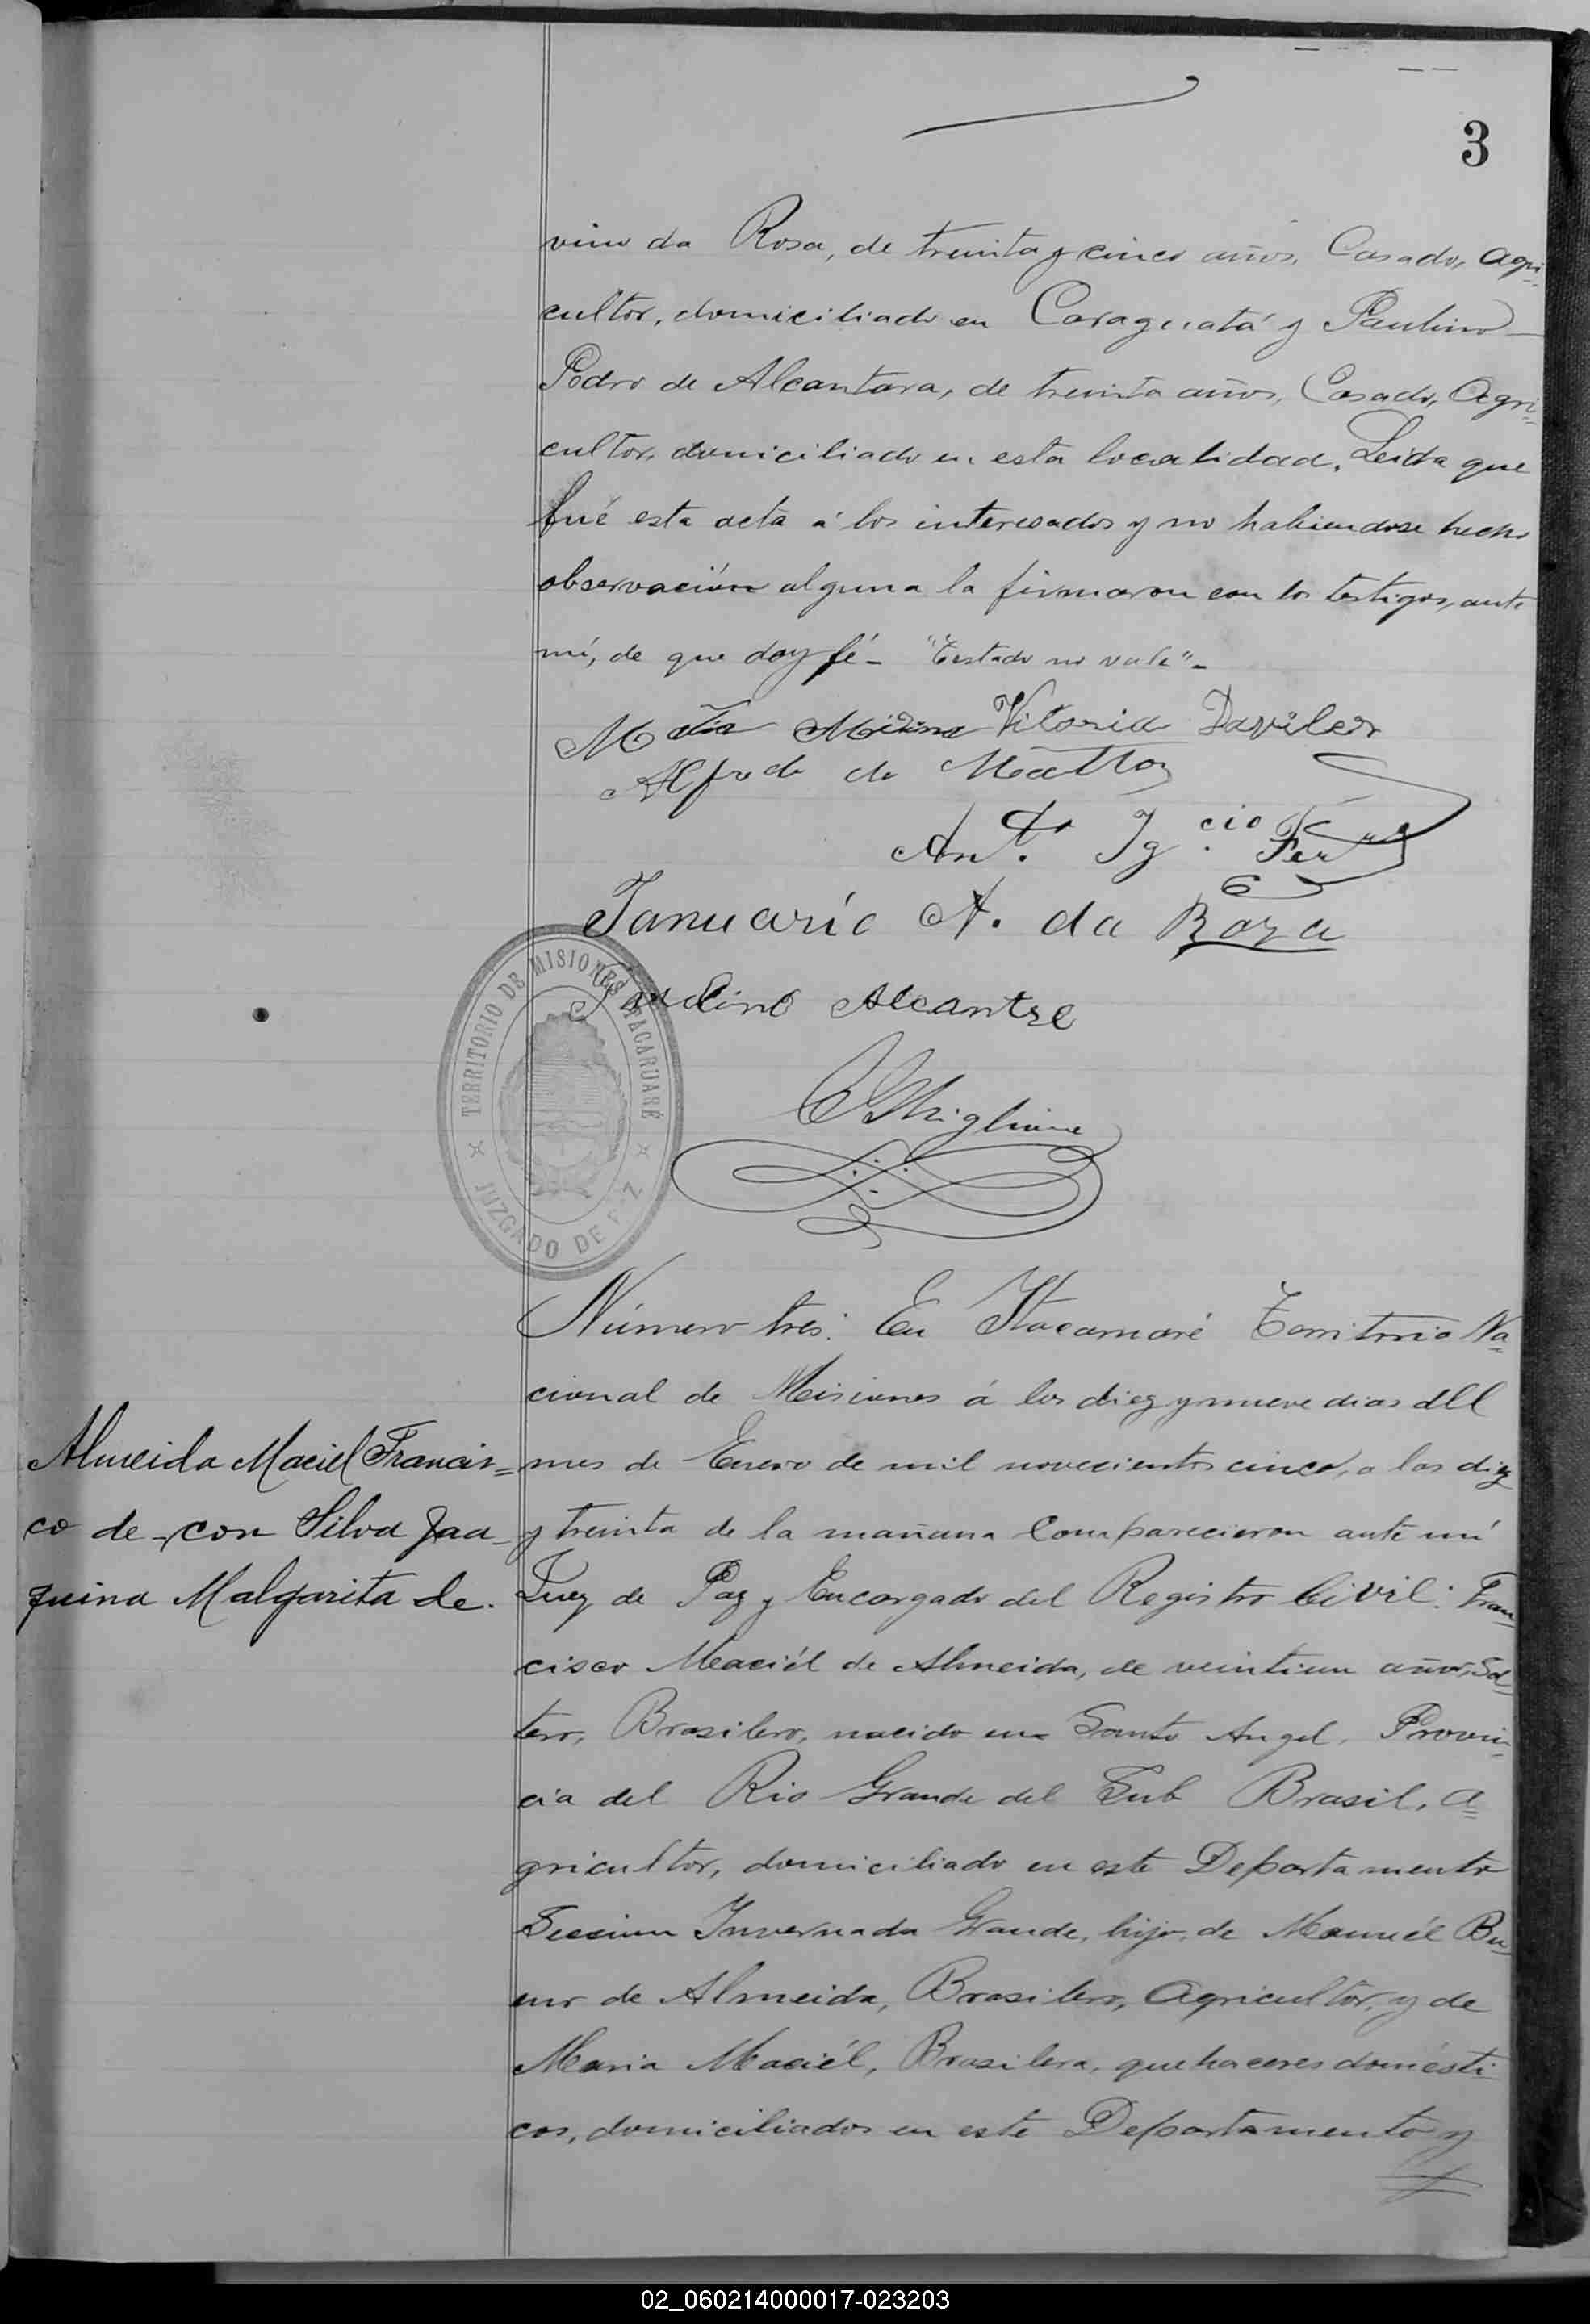 3
vino da Rosa, de treinta y cinco años, Casado, Agri=
cultor, domiciliado en Caraguatá y Paulino
Pedro de Alcantara, de treinta años, Casado, Agri=
cultor, domiciliado en esta localidad. Leida que
fué esta acta á los interesados y no habiendose hecho
observación alguna la firmaron con los testigos, ante
mí, de que doy fé - "Testado no vale" -
Vitoria
Alfredo de Mattos
Ant.º Ig.cio
Januario A. da Roza
Paulino Alcantre
TERRITORIO DE MISIONES ITACARUARÉ
JUZGADO DE PAZ
Número tres: En Itacaruaré Territorio Na=
cional de Misiones á los diez y nueve dias dell
Almeida Maciel Francis=
co de - con Silva Joa
quina Malgarita de.
mes de Enero de mil novecientos cinco, a las diez
y treinta de la mañana Comparecieron ante mí
Juez de Paz y Encargado del Registro Civil: Fran
cisco Maciél de Almeida, de veintiun años, Sol
tero, Brasilero, nacido en Santo Angel, Provin=
cia del Rio Grande del Sub Brasil, A=
gricultor, domiciliado en este Departamento
Seccion Invernada Grande, hijo, de Manuél Bu
eno de Almeida, Brasilero, Agricultor, y de
Maria Maciél, Brasilera, quehaceres domésti
cos, domiciliados en este Departamento y
02_060214000017-023203